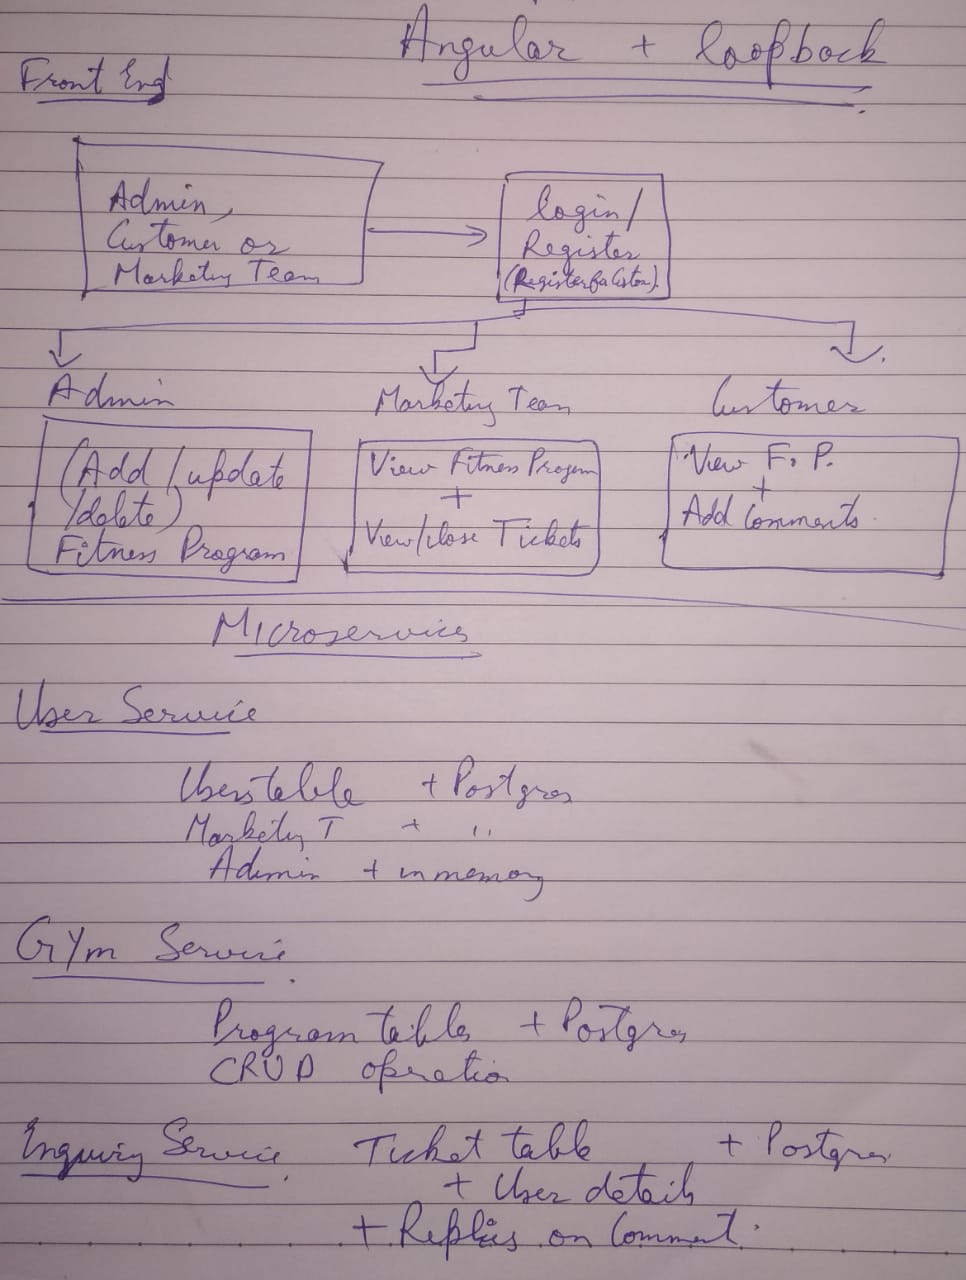 Angular + loopback
Front End
Admin,
Customer or
Marketing Team
login/
Register
(Register for Custom).
Admin
Marketing Team
Customer
(Add / update
/delete)
Fitness Program
View Fitness Program
+
View/close Tickets
View F. P.
+
Add Comments.
Microservices
User Service
Users table + Postgres
Marketing T + "
Admin + in memory
GYm Service
Program table + Postgres
CRUD operation
Enquiry Service. Ticket table + Postgres
+ User details
+ Replies on Comment.